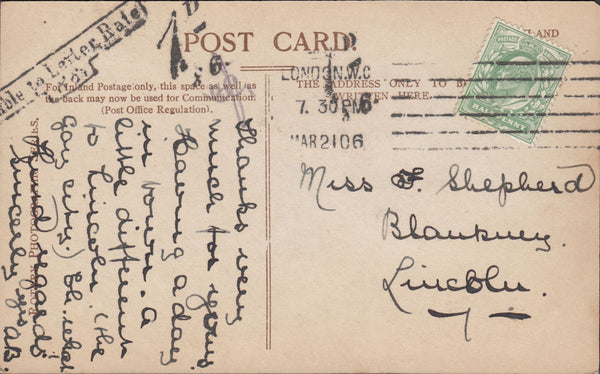 POST CARD.
LAND
Liable to Letter Rate
1D
6
For Inland Postage only, this space as well as
the back may now be used for Communication.
(Post Office Regulation).
THE ADDRESS ONLY TO BE
WRITTEN HERE.
LONDON.W.C
7. 30 PM
MAR 21 06
POSTAGE
Thanks very
much for yours.
Having a day
in town. A
little different
to Lincoln (the
gay city). Eh what
Kind regards
Sincerely yrs AB.
Miss F. Shepherd
Blankney
Lincoln.